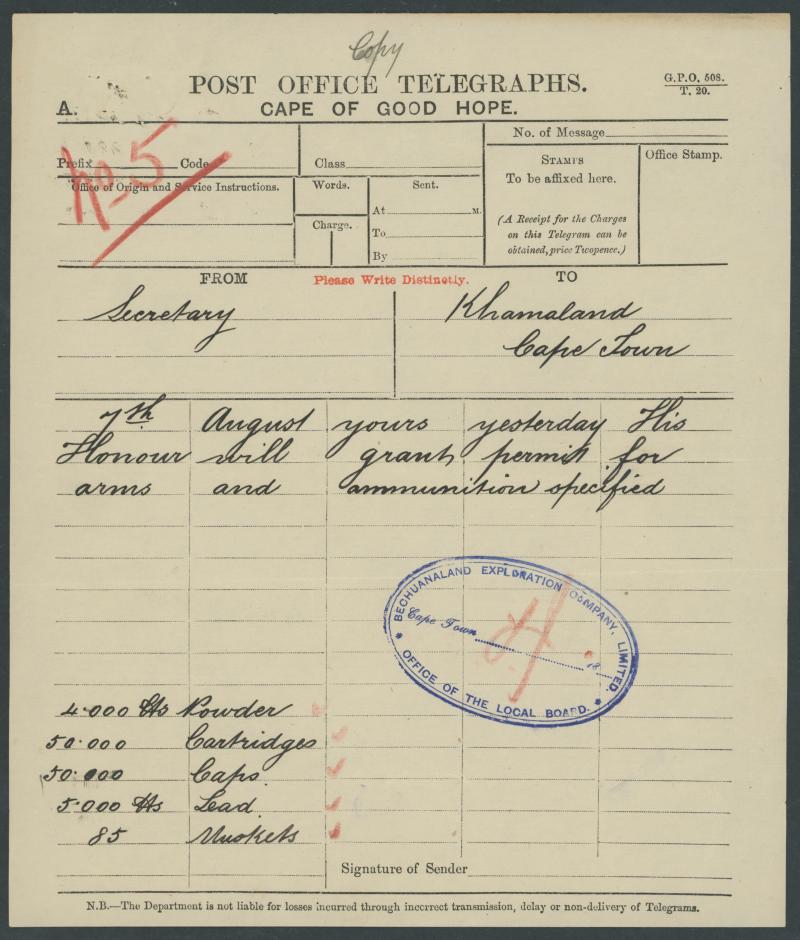 Copy
POST OFFICE TELEGRAPHS.
G.P.O. 508.
T. 20.
A.
CAPE OF GOOD HOPE.
No. of Message
No 5
Prefix Code
Class
STAMPS
To be affixed here.
(A Receipt for the Charges
on this Telegram can be
obtained, price Twopence.)
Office Stamp.
Office of Origin and Service Instructions.
Words.
Sent.
At M.
Charge.
To
By
FROM
Please Write Distinctly.
TO
Secretary
Khamaland
Cape Town
7th August yours yesterday His
Honour will grant permit for
arms and ammunition specified
BECHUANALAND EXPLORATION COMPANY, LIMITED.
Cape Town
18
OFFICE OF THE LOCAL BOARD.
4.000 lbs Powder
50.000 Cartridges
50.000 Caps.
5.000 lbs Lead
85 Muskets
Signature of Sender
N.B.—The Department is not liable for losses incurred through incorrect transmission, delay or non-delivery of Telegrams.